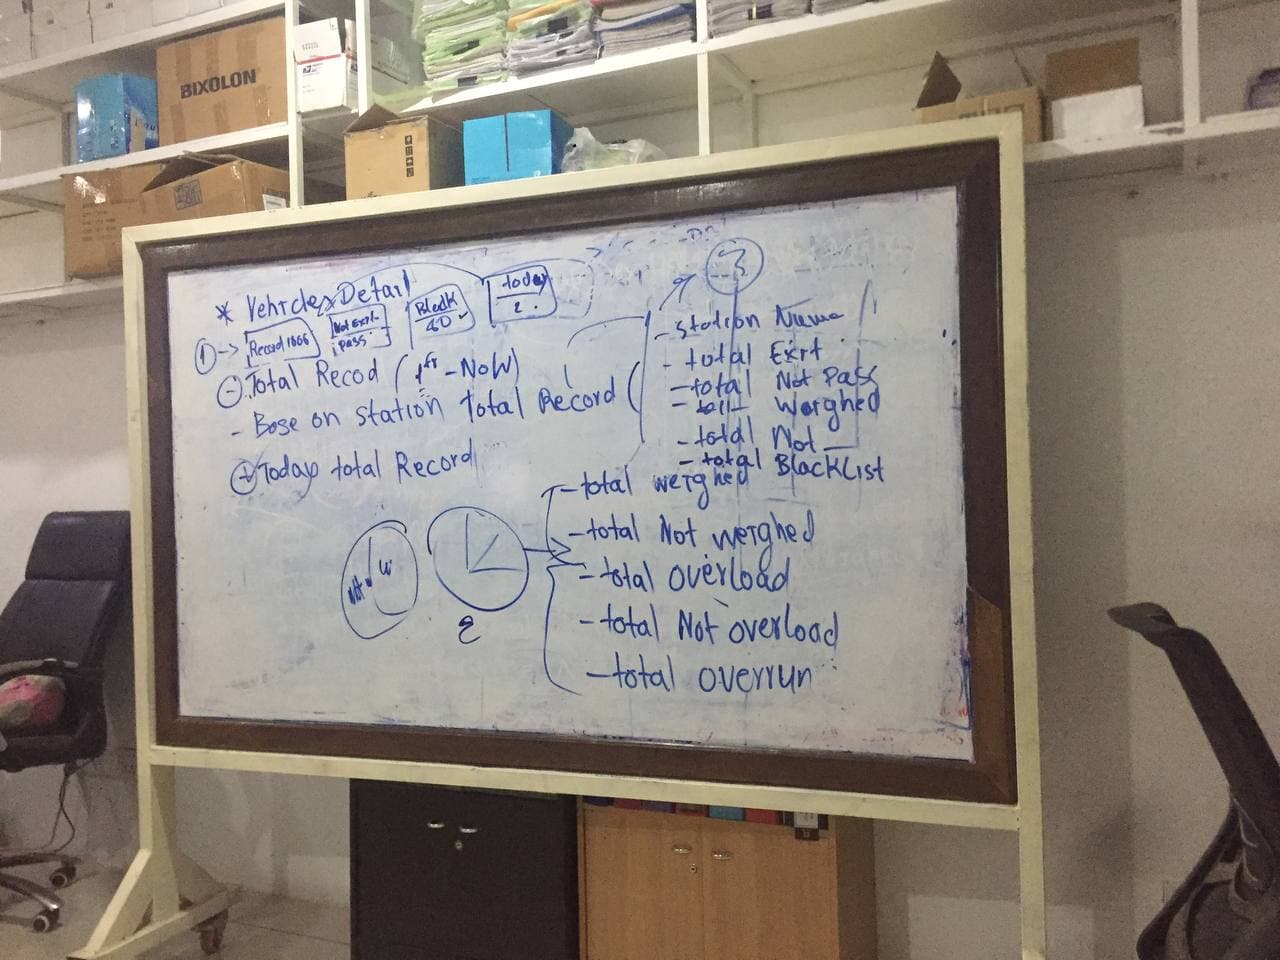 BIXOLON
* Vehicles Detail
1 -> Record 1000
Not Exit
pass
Black
80
today
2
- Total Recod (1st - NOW)
- Base on station Total Record
Today total Record
3
- station Name
- total Exit
- total Not Pass
- Weighed
- total Not
- total BlackList
- total weighed
- total Not weighed
- total overload
- total Not overload
- total overrun
Not
w
2